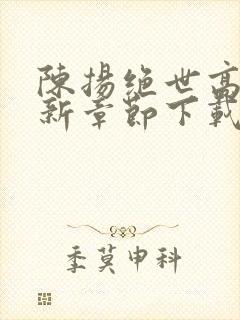 陳揚絕世高
新章節下載
季莫申科